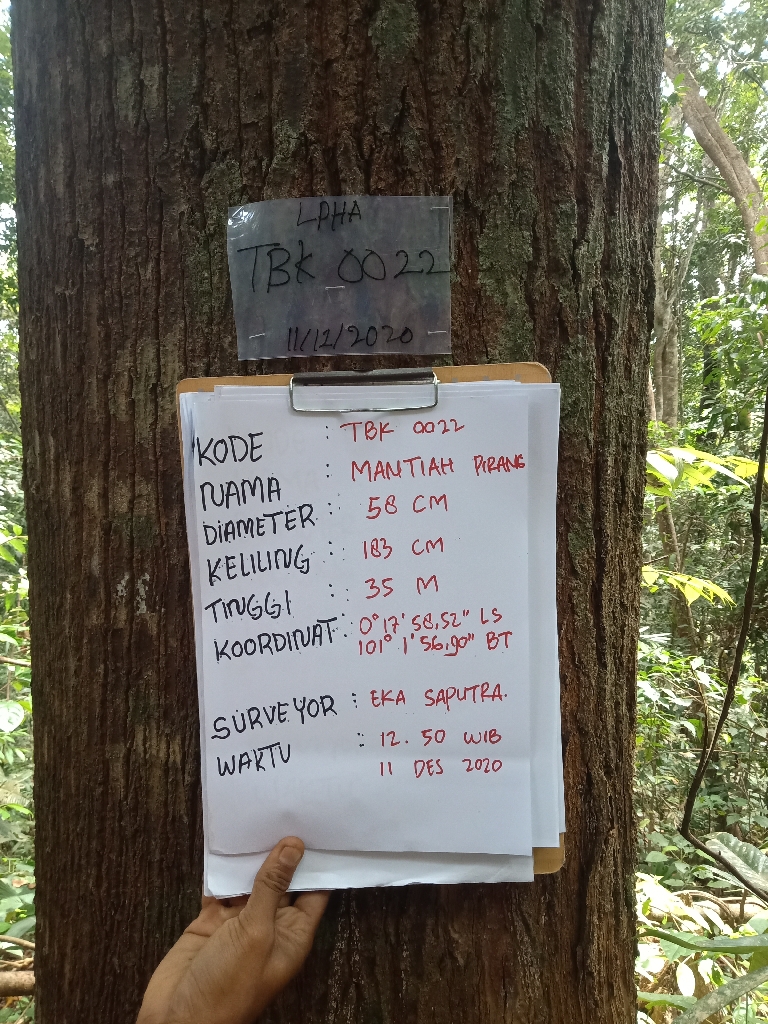 LPHA
TBK 0022
11/12/2020
KODE : TBK 0022
NAMA : MANTIAH PIRANG
DIAMETER : 58 CM
KELILING : 183 CM
TINGGI : 35 M
KOORDINAT : 0° 17' 58,52" LS
101° 1' 56,90" BT
SURVEYOR : EKA SAPUTRA.
WAKTU : 12.50 WIB
11 DES 2020